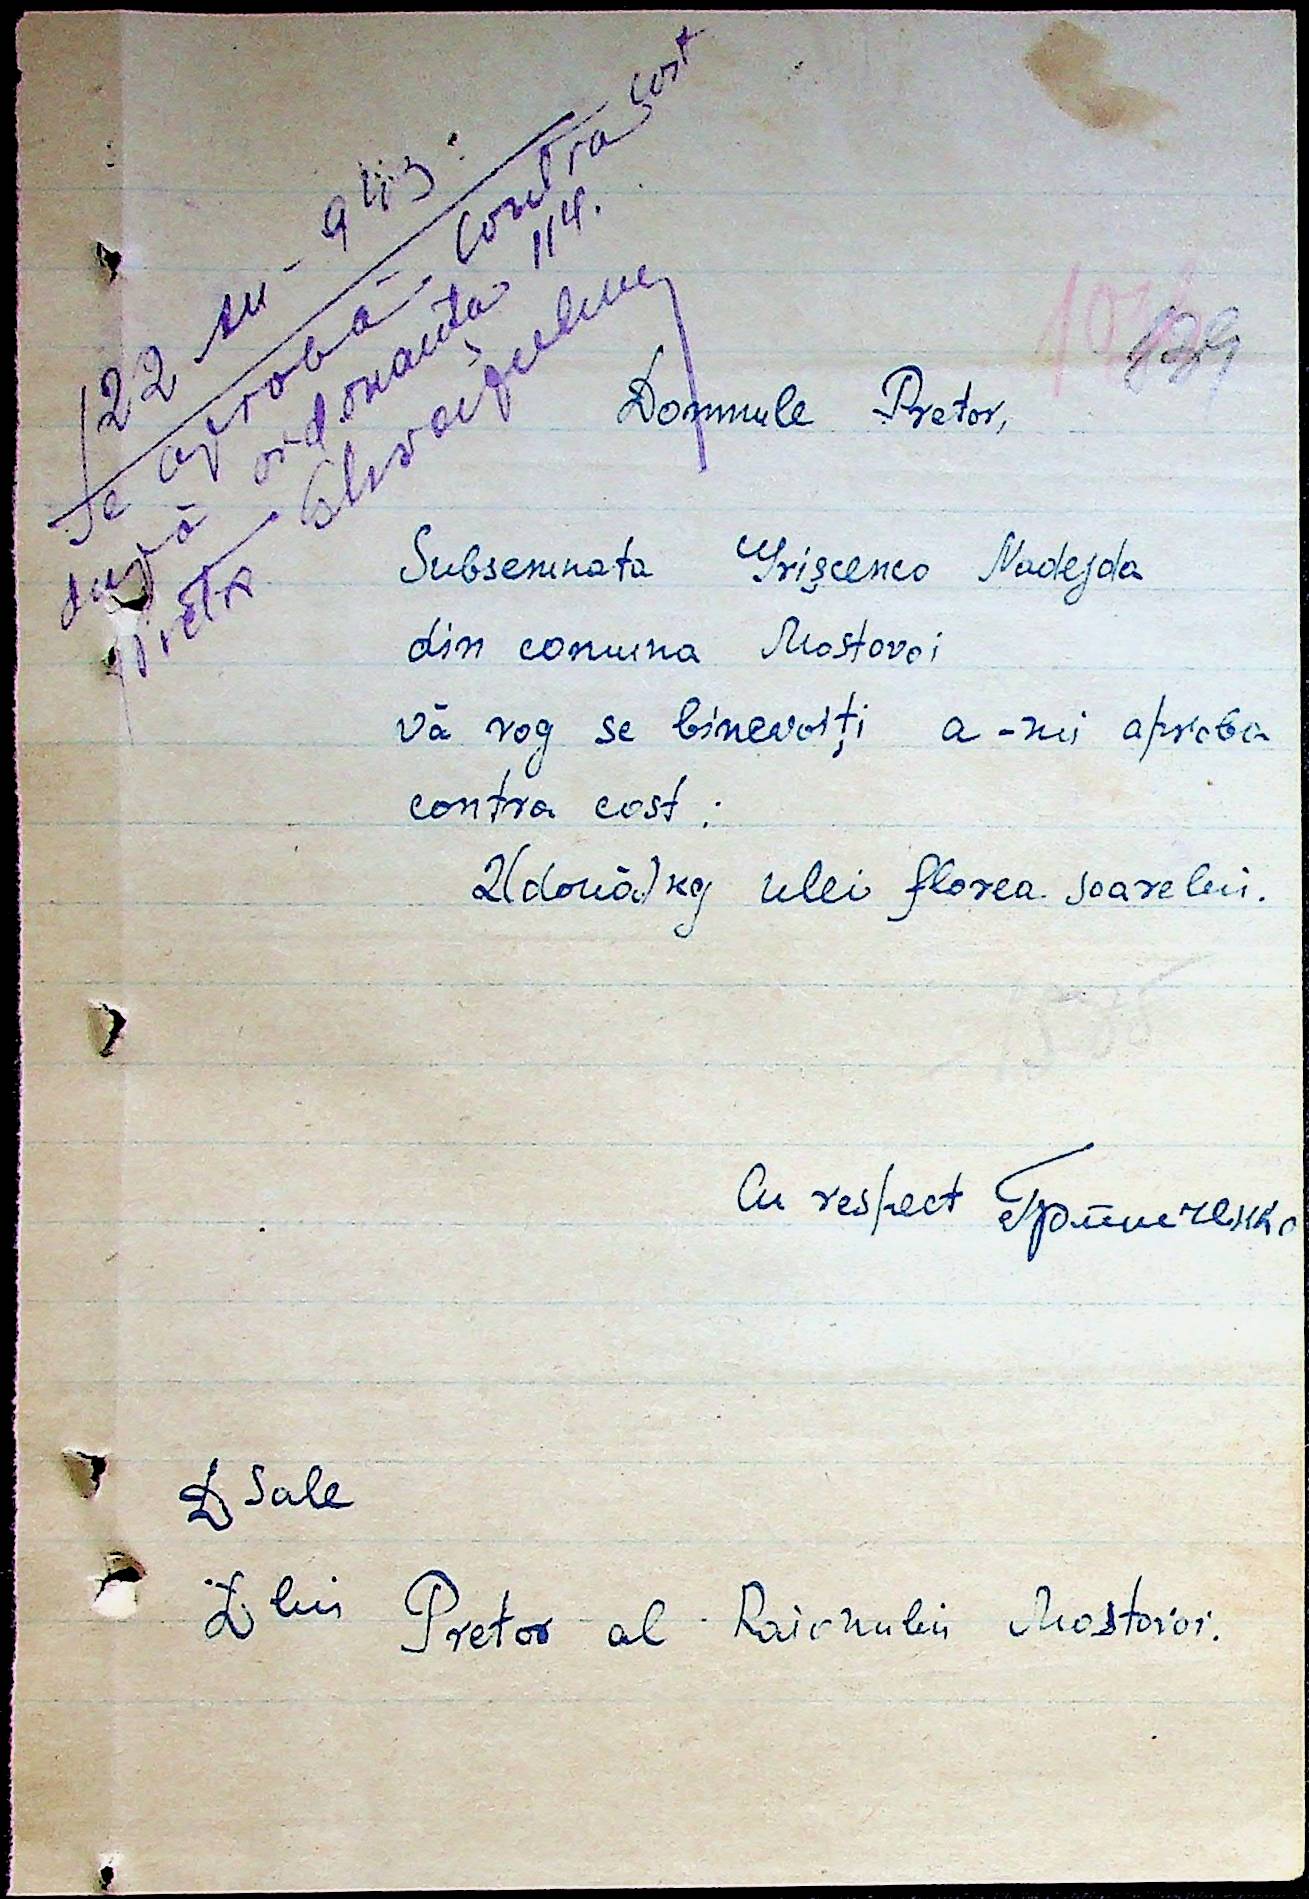 22 III - 943.
Se aprobă contra cost
după ordonanța 114.
Pretor
Domnule Pretor,
Subsemnata Grișcenco Nadejda
din comuna Mostovoi
vă rog se binevoiți a-mi aproba
contra cost:
2(două) kg ulei florea soarelui.
Cu respect Грищенко
D sale
D lui Pretor al Raionului Mostovoi.